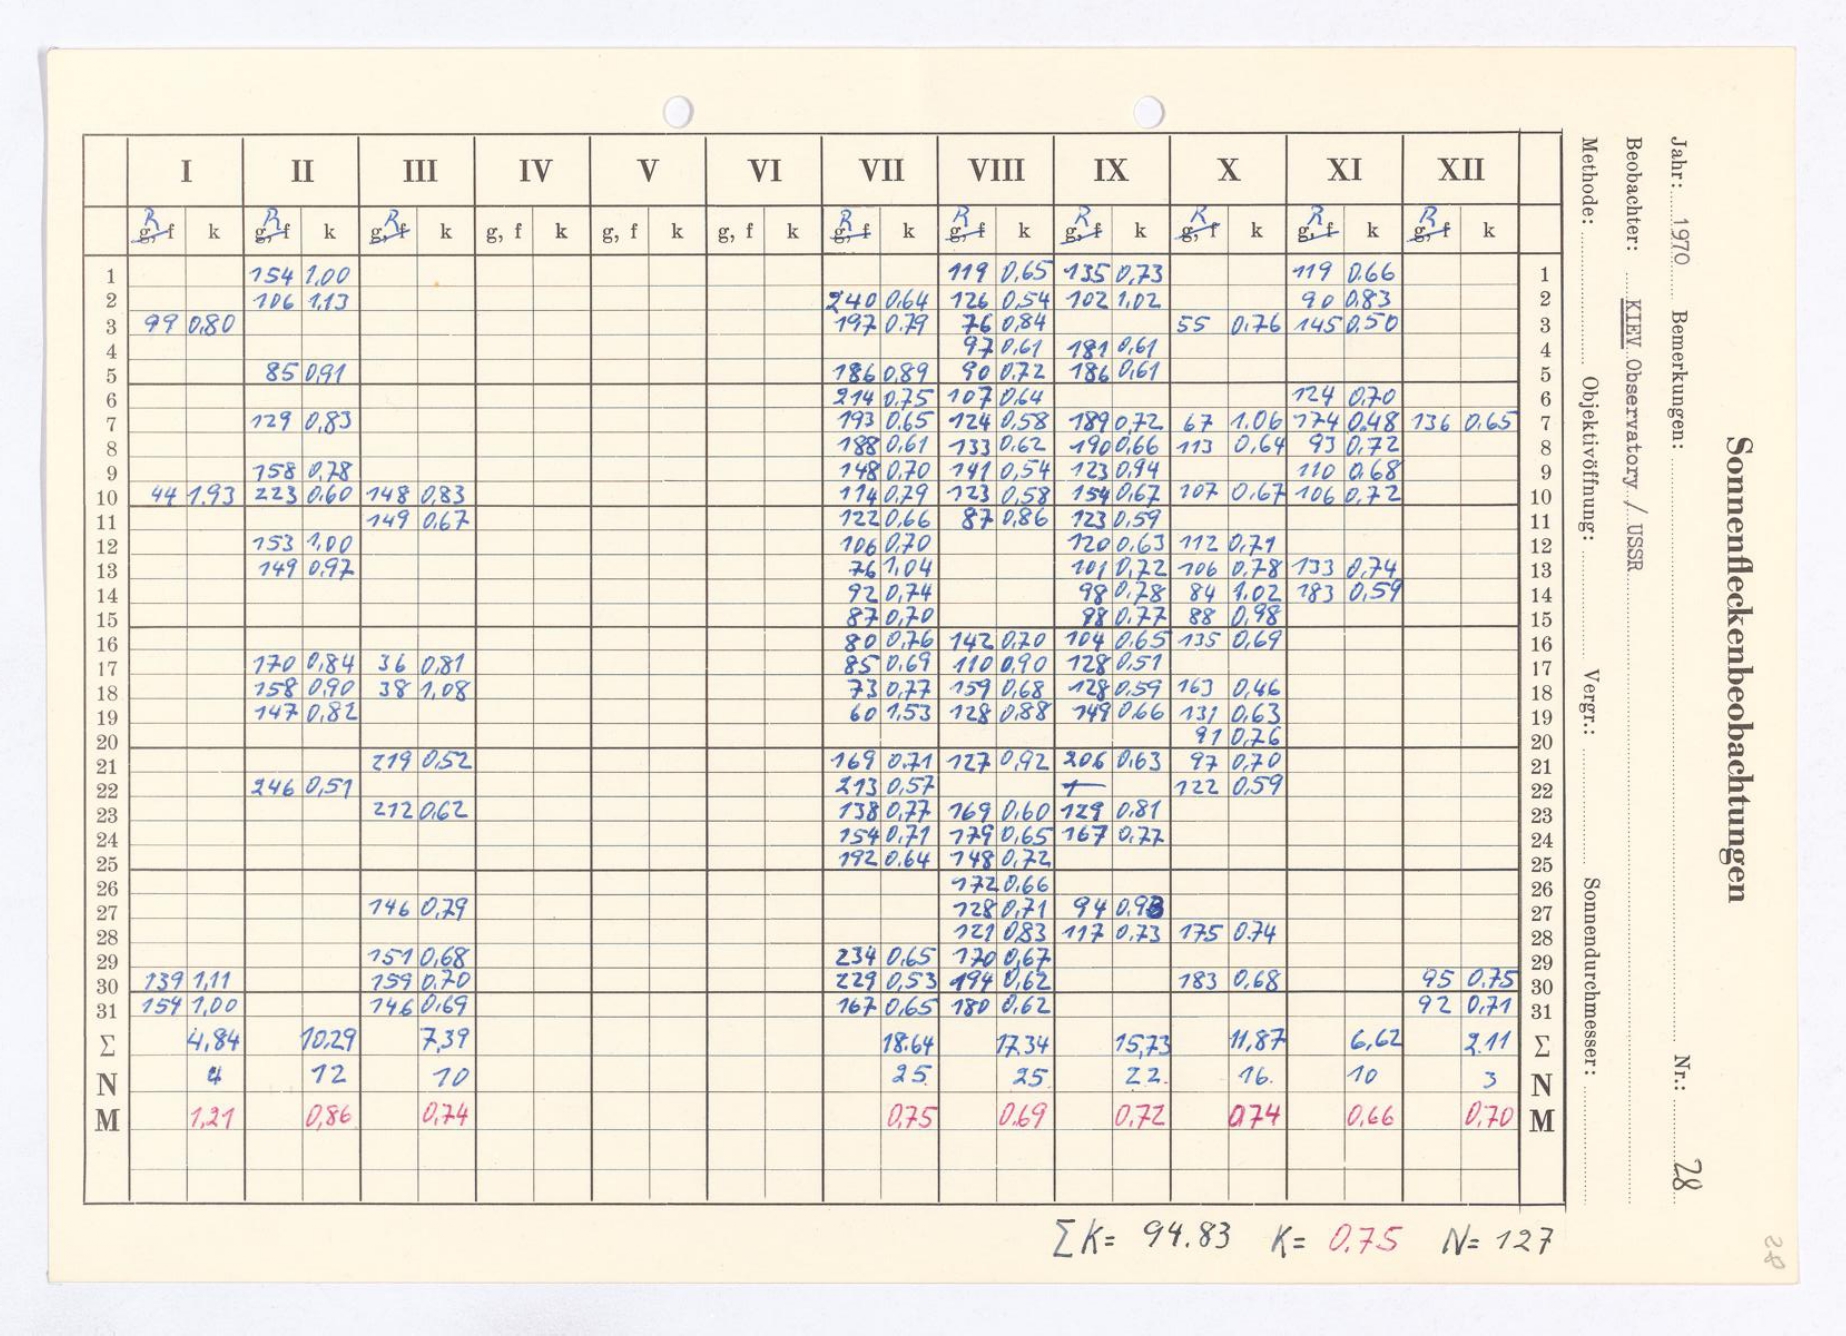 Sonnenfleckenbeobachtungen
Jahr: 1970 Bemerkungen: Nr.: 28
Beobachter: KIEV Observatory / USSR
Methode: Objektivöffnung: Vergr.: Sonnendurchmesser:
I II III IV V VI VII VIII IX X XI XII
R g, f k R g, f k R g, f k g, f k g, f k g, f k R g, f k R g, f k R g, f k R g, f k R g, f k R g, f k
1 154 1,00 119 0,65 135 0,73 119 0.66 1
2 106 1,13 240 0,64 126 0,54 102 1,02 90 0,83 2
3 99 0,80 197 0.79 76 0,84 55 0,76 145 0,50 3
4 97 0,61 181 0,61 4
5 85 0,91 186 0,89 90 0,72 186 0,61 5
6 214 0,75 107 0,64 124 0,70 6
7 129 0,83 193 0.65 124 0,58 189 0,72 67 1.06 174 0,48 136 0.65 7
8 188 0,61 133 0,62 190 0,66 113 0,64 93 0,72 8
9 158 0,78 148 0,70 141 0,54 123 0,94 110 0,68 9
10 44 1.93 223 0,60 148 0,83 114 0,79 123 0,58 154 0,67 107 0,67 106 0,72 10
11 149 0,67 122 0,66 87 0,86 123 0,59 11
12 153 1,00 106 0,70 120 0,63 112 0,71 12
13 149 0,97 76 1,04 101 0,72 106 0,78 133 0,74 13
14 92 0,74 98 0,78 84 1.02 183 0,59 14
15 87 0,70 98 0,77 88 0,98 15
16 80 0,76 142 0,70 104 0,65 135 0,69 16
17 170 0,84 36 0,81 85 0,69 110 0,90 128 0,51 17
18 158 0,90 38 1,08 73 0,77 159 0,68 128 0,59 163 0,46 18
19 147 0,82 60 1,53 128 0,88 149 0,66 131 0,63 19
20 91 0,76 20
21 219 0,52 169 0.71 127 0,92 206 0,63 97 0,70 21
22 246 0,51 213 0,57 122 0,59 22
23 212 0,62 138 0,77 169 0,60 129 0,81 23
24 154 0,71 179 0,65 167 0,77 24
25 192 0.64 148 0,72 25
26 172 0,66 26
27 146 0,79 128 0,71 94 0,93 27
28 121 0,83 117 0,73 175 0.74 28
29 151 0,68 234 0,65 170 0,67 29
30 139 1,11 159 0,70 229 0,53 194 0,62 183 0,68 95 0.75 30
31 154 1,00 146 0,69 167 0,65 180 0,62 92 0,71 31
Σ 4,84 10,29 7,39 18.64 17.34 15,73 11,87 6,62 2.11 Σ
N 4 12 10 25 25 22 16 10 3 N
M 1,21 0,86 0,74 0,75 0.69 0,72 0,74 0,66 0,70 M
Σ K = 94.83 K = 0.75 N = 127
28